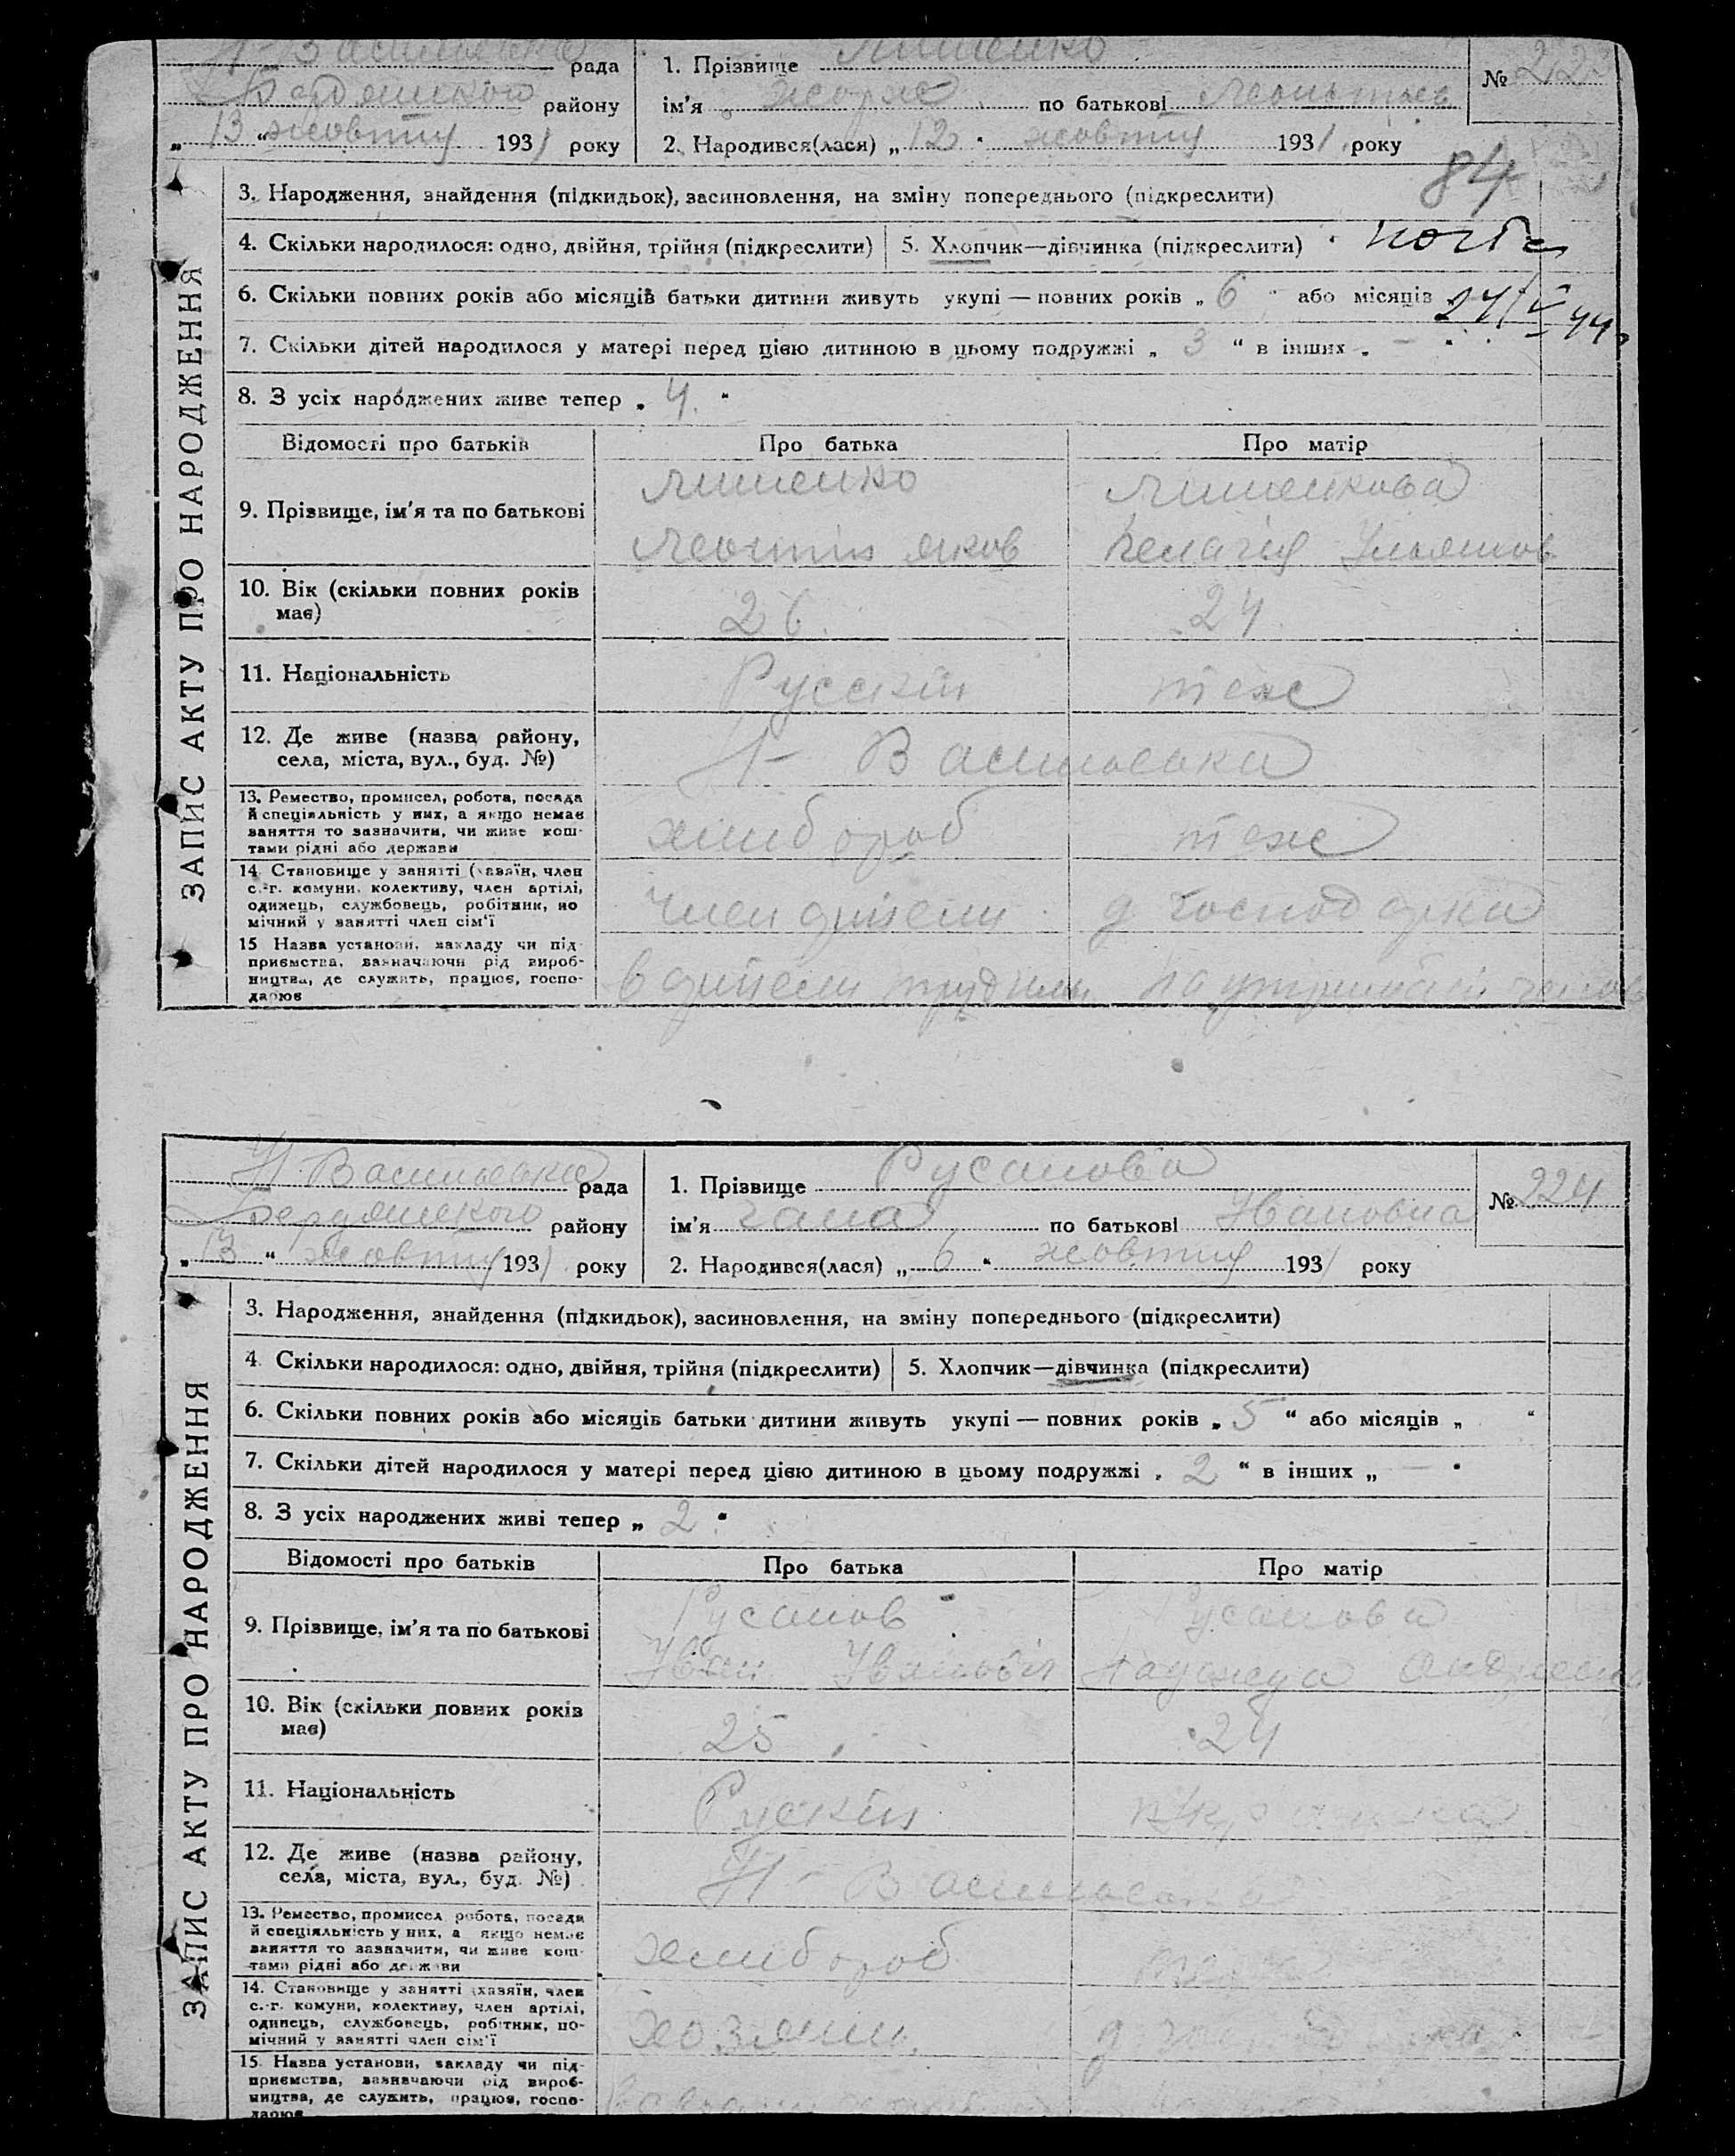 Н-Васильевка рада
Бердянского району
„ 13 “ жовтня 1931 року
1. Прізвище Лишенко
ім'я Жорж по батькові
2. Народився(лася) „ 12 “ жовтня 1931 року
№ 223
84
3. Народження, знайдення (підкидьок), засиновлення, на зміну попереднього (підкреслити)
4. Скільки народилося: одно, двійня, трійня (підкреслити) 5. Хлопчик—дівчинка (підкреслити)
6. Скільки повних років або місяців батьки дитини живуть укупі — повних років „ 6 “ або місяців „
7. Скільки дітей народилося у матері перед цією дитиною в цьому подружжі „ 3 “ в інших „ — “
8. З усіх народжених живе тепер „ 4 “
ЗАПИС АКТУ ПРО НАРОДЖЕННЯ
Відомості про батьків Про батька Про матір
9. Прізвище, ім'я та по батькові
Лишенко Лишенкова
Яков Пелагия
10. Вік (скільки повних років має)
26 24
11. Національність
Русскій теж
12. Де живе (назва району,
села, міста, вул., буд. №)
Н- Васильевка
13. Ремество, промисел, робота, посада
й спеціяльність у них, а якщо немає
заняття то зазначити, чи живе кош-
тами рідні або держави
хлибороб теж
14. Становище у занятті (хазяїн, член
с.-г. комуни, колективу, член артілі,
одинець, службовець, робітник, по
мічний у занятті член сім'ї
член артели д. господарка
15 Назва установи, закладу чи під-
приємства, зазначаючи рід вироб-
ництва, де служить, працює, госпо-
дарює
в артели
Н Васильевка рада
Бердянского району
„ 13 “ жовтня 1931 року
1. Прізвище Русанова
ім'я Гала по батькові Ивановна
2. Народився(лася) „ 6 “ жовтня 1931 року
№ 224
3. Народження, знайдення (підкидьок), засиновлення, на зміну попереднього (підкреслити)
4. Скільки народилося: одно, двійня, трійня (підкреслити) 5. Хлопчик—дівчинка (підкреслити)
6. Скільки повних років або місяців батьки дитини живуть укупі — повних років „ 5 “ або місяців „ “
7. Скільки дітей народилося у матері перед цією дитиною в цьому подружжі „ 2 “ в інших „ — “
8. З усіх народжених живі тепер „ 2 “
ЗАПИС АКТУ ПРО НАРОДЖЕННЯ
Відомості про батьків Про батька Про матір
9. Прізвище, ім'я та по батькові
Русанов Русанова
Иван Надежда
10. Вік (скільки повних років має)
25 24
11. Національність
Рускій
12. Де живе (назва району,
села, міста, вул., буд. №)
Н- Васильевка
13. Ремество, промисел робота, посада
й спеціяльність у них, а якщо немає
заняття то зазначити, чи живе кош-
тами рідні або держави
хлибороб
14. Становище у занятті (хазяїн, член
с.-г. комуни, колективу, член артілі,
одинець, службовець, робітник, по-
мічний у занятті член сім'ї
хозяин
15. Назва установи, закладу чи під-
приємства, зазначаючи рід вироб-
ництва, де служить, працює, госпо-
дарює